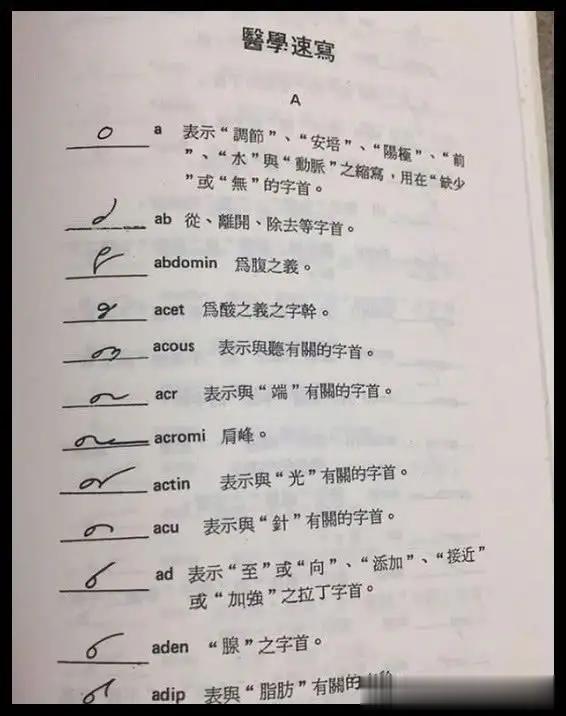 醫學速寫
A
a 表示“調節”、“安培”、“陽極”、“前
”、“水”與“動脈”之縮寫，用在“缺少
”或“無”的字首。
ab 從、離開、除去等字首。
abdomin 爲腹之義。
acet 爲酸之義之字幹。
acous 表示與聽有關的字首。
acr 表示與“端”有關的字首。
acromi 肩峰。
actin 表示與“光”有關的字首。
acu 表示與“針”有關的字首。
ad 表示“至”或“向”、“添加”、“接近”
或“加強”之拉丁字首。
aden “腺”之字首。
adip 表與“脂肪”有關的